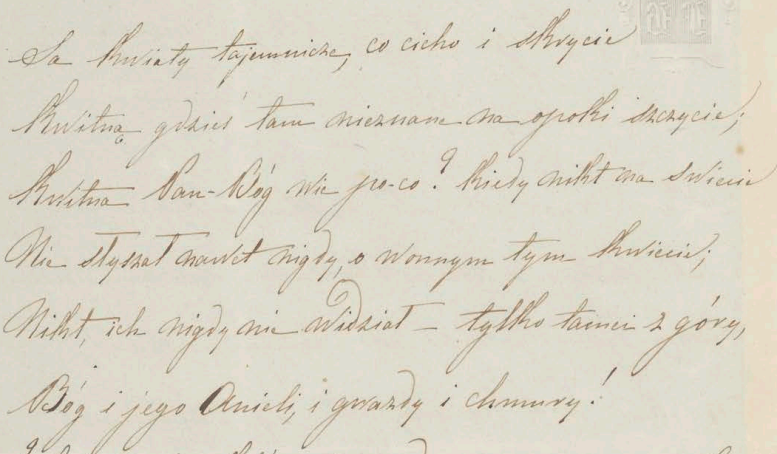 Sa kwiaty tajemnicze, co cicho i skrycie
Kwitną gdzieś tam nieznane na opoki szczycie;
Kwitna Pan-Bóg wie po-co? kiedy nikt na swiecie
Nie słyszał nawet nigdy, o wonnym tym kwiecie;
Nikt, ich nigdy nie widział – tylko tamci z góry,
Bóg i jego Anieli, i gwiazdy i chmury!